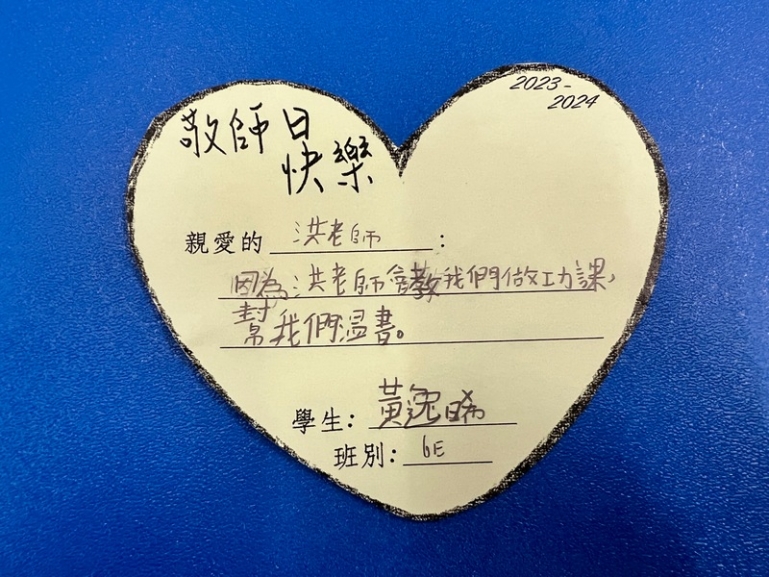 2023-
2024
敬師日
快樂
親愛的 洪老師 :
因為洪老師會教我們做功課,
幫我們温書。
學生: 黃逸晞
班別: 6E